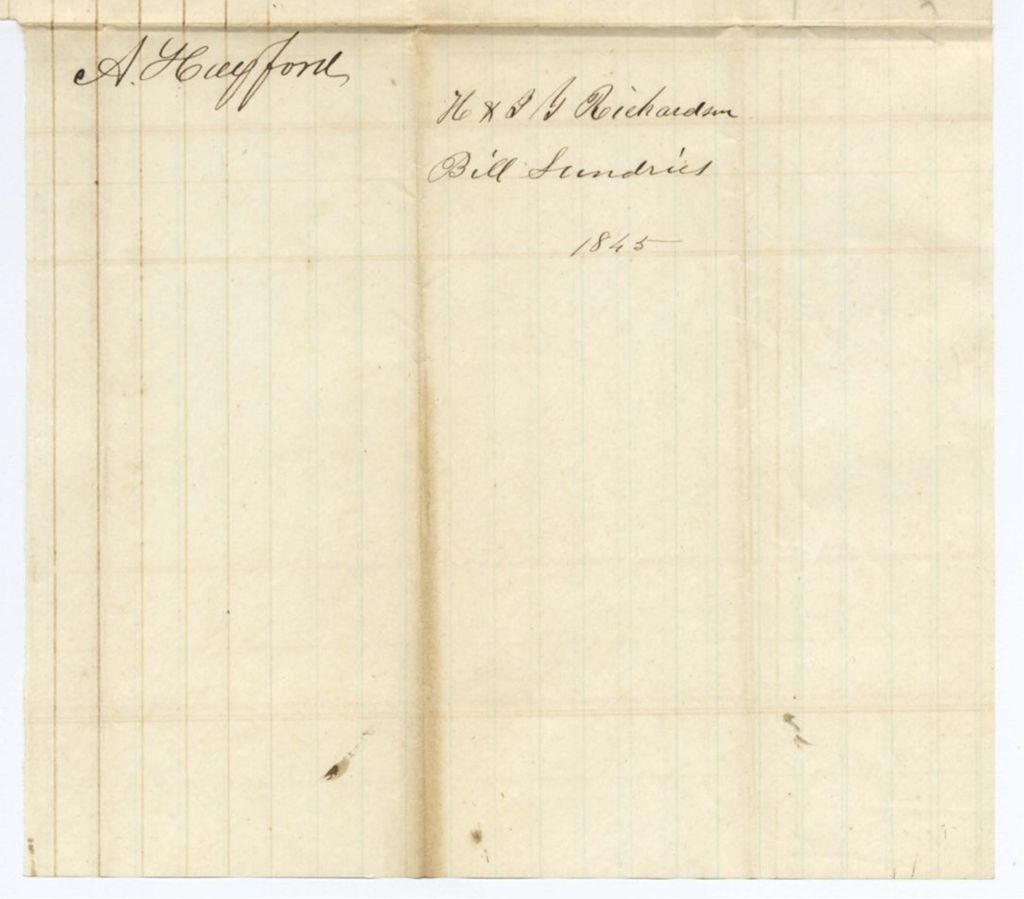 A. Hayford
H & J G Richardson
Bill Sundries
1845